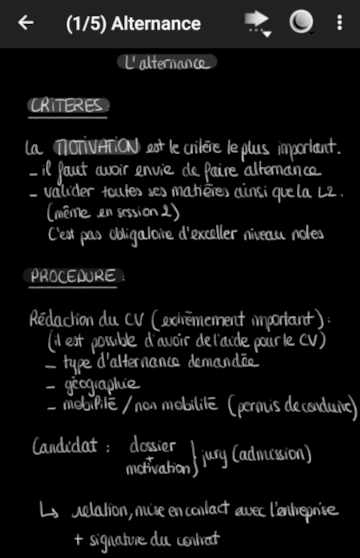 (1/5) Alternance
L'alternance
CRITERES
La MOTIVATION est le critère le plus important.
- il faut avoir envie de faire alternance
- valider toutes ses matières ainsi que la L2.
(même en session 2)
C'est pas obligatoire d'exceller niveau notes
PROCEDURE :
Rédaction du CV (extrêmement important) :
(il est possible d'avoir de l'aide pour le CV)
- type d'alternance demandée
- géographie
- mobilité / non mobilité (permis de conduire)
Candidat : dossier
+
motivation } jury (admission)
↳ relation, mise en contact avec l'entreprise
+ signature du contrat